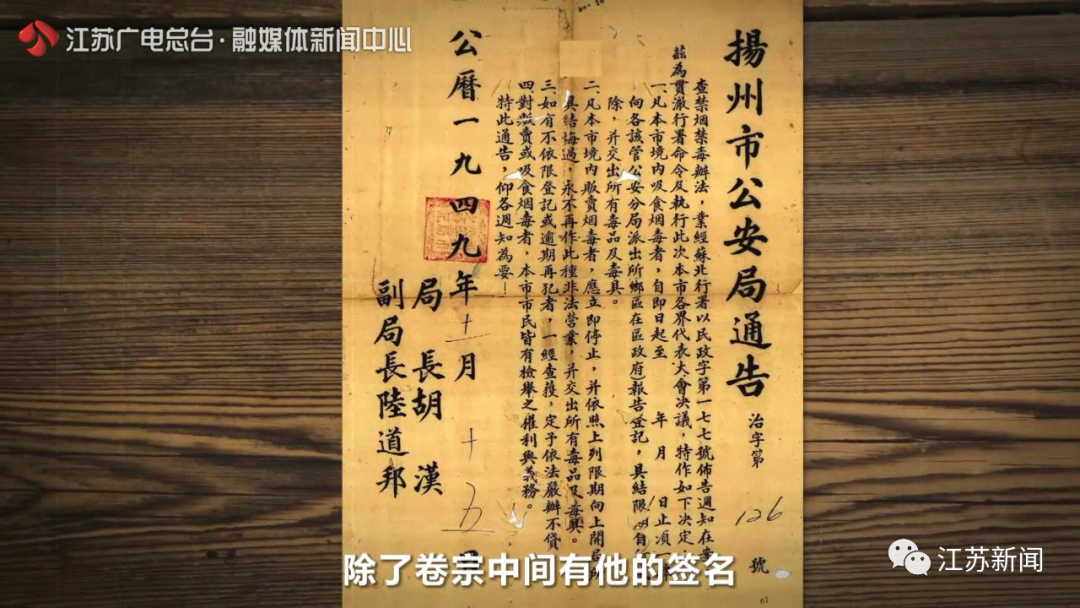 江苏广电总台·融媒体新闻中心
揚州市公安局通告
治字第126號
查禁烟禁毒辦法，業經蘇北行署以民政字第一七七號佈告週知在案
茲為貫澈行署命令及執行此次本市各界代表大會决議，特作如下决定
一、凡本市境内吸食烟毒者，自即日起至　年　月　日止須一
向各該管公安分局派出所鄉區在區政府）報告登記，具結限期自
除，并交出所有毒品及毒具。
二、凡本市境内販賣烟毒者，應立即停止，并依照上列限期向上開局
具結悔過，永不再作此種非法營業，并交出所有毒品及毒具。
三、如有不依限登記或逾期再犯者，一經查獲，定予依法嚴辦不貸
四、對販賣或吸食烟毒者，本市市民皆有檢舉之權利與義務。
特此通告，仰各週知為要！
公曆一九四九年十一月十五
局長胡漢
副局長陸道邦
除了卷宗中间有他的签名
江苏新闻